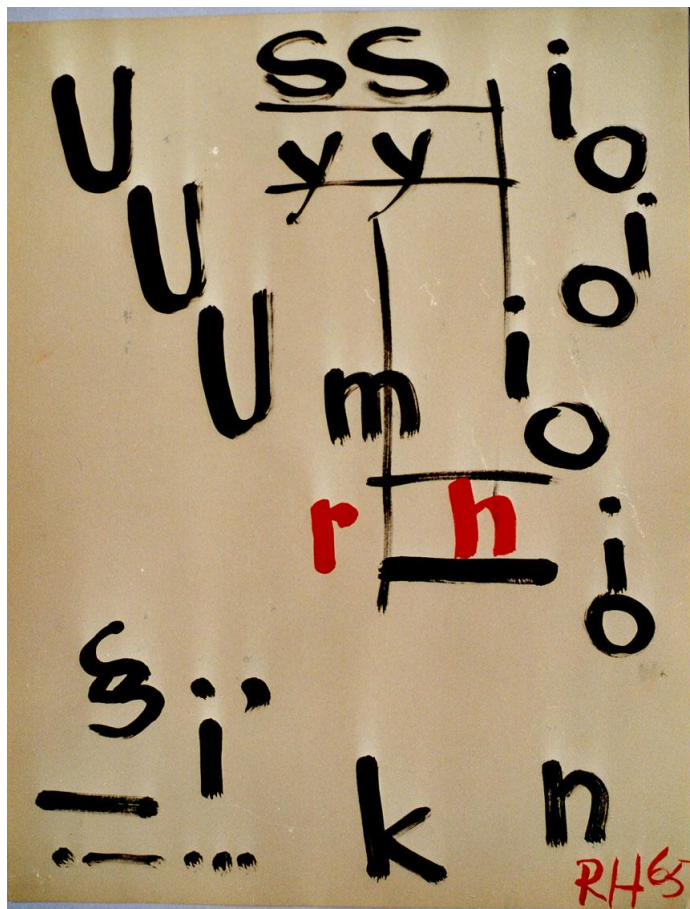 ss
U yy i
o
U i
o
U i
m o
r h i
o
§ i ,
k n
RH65